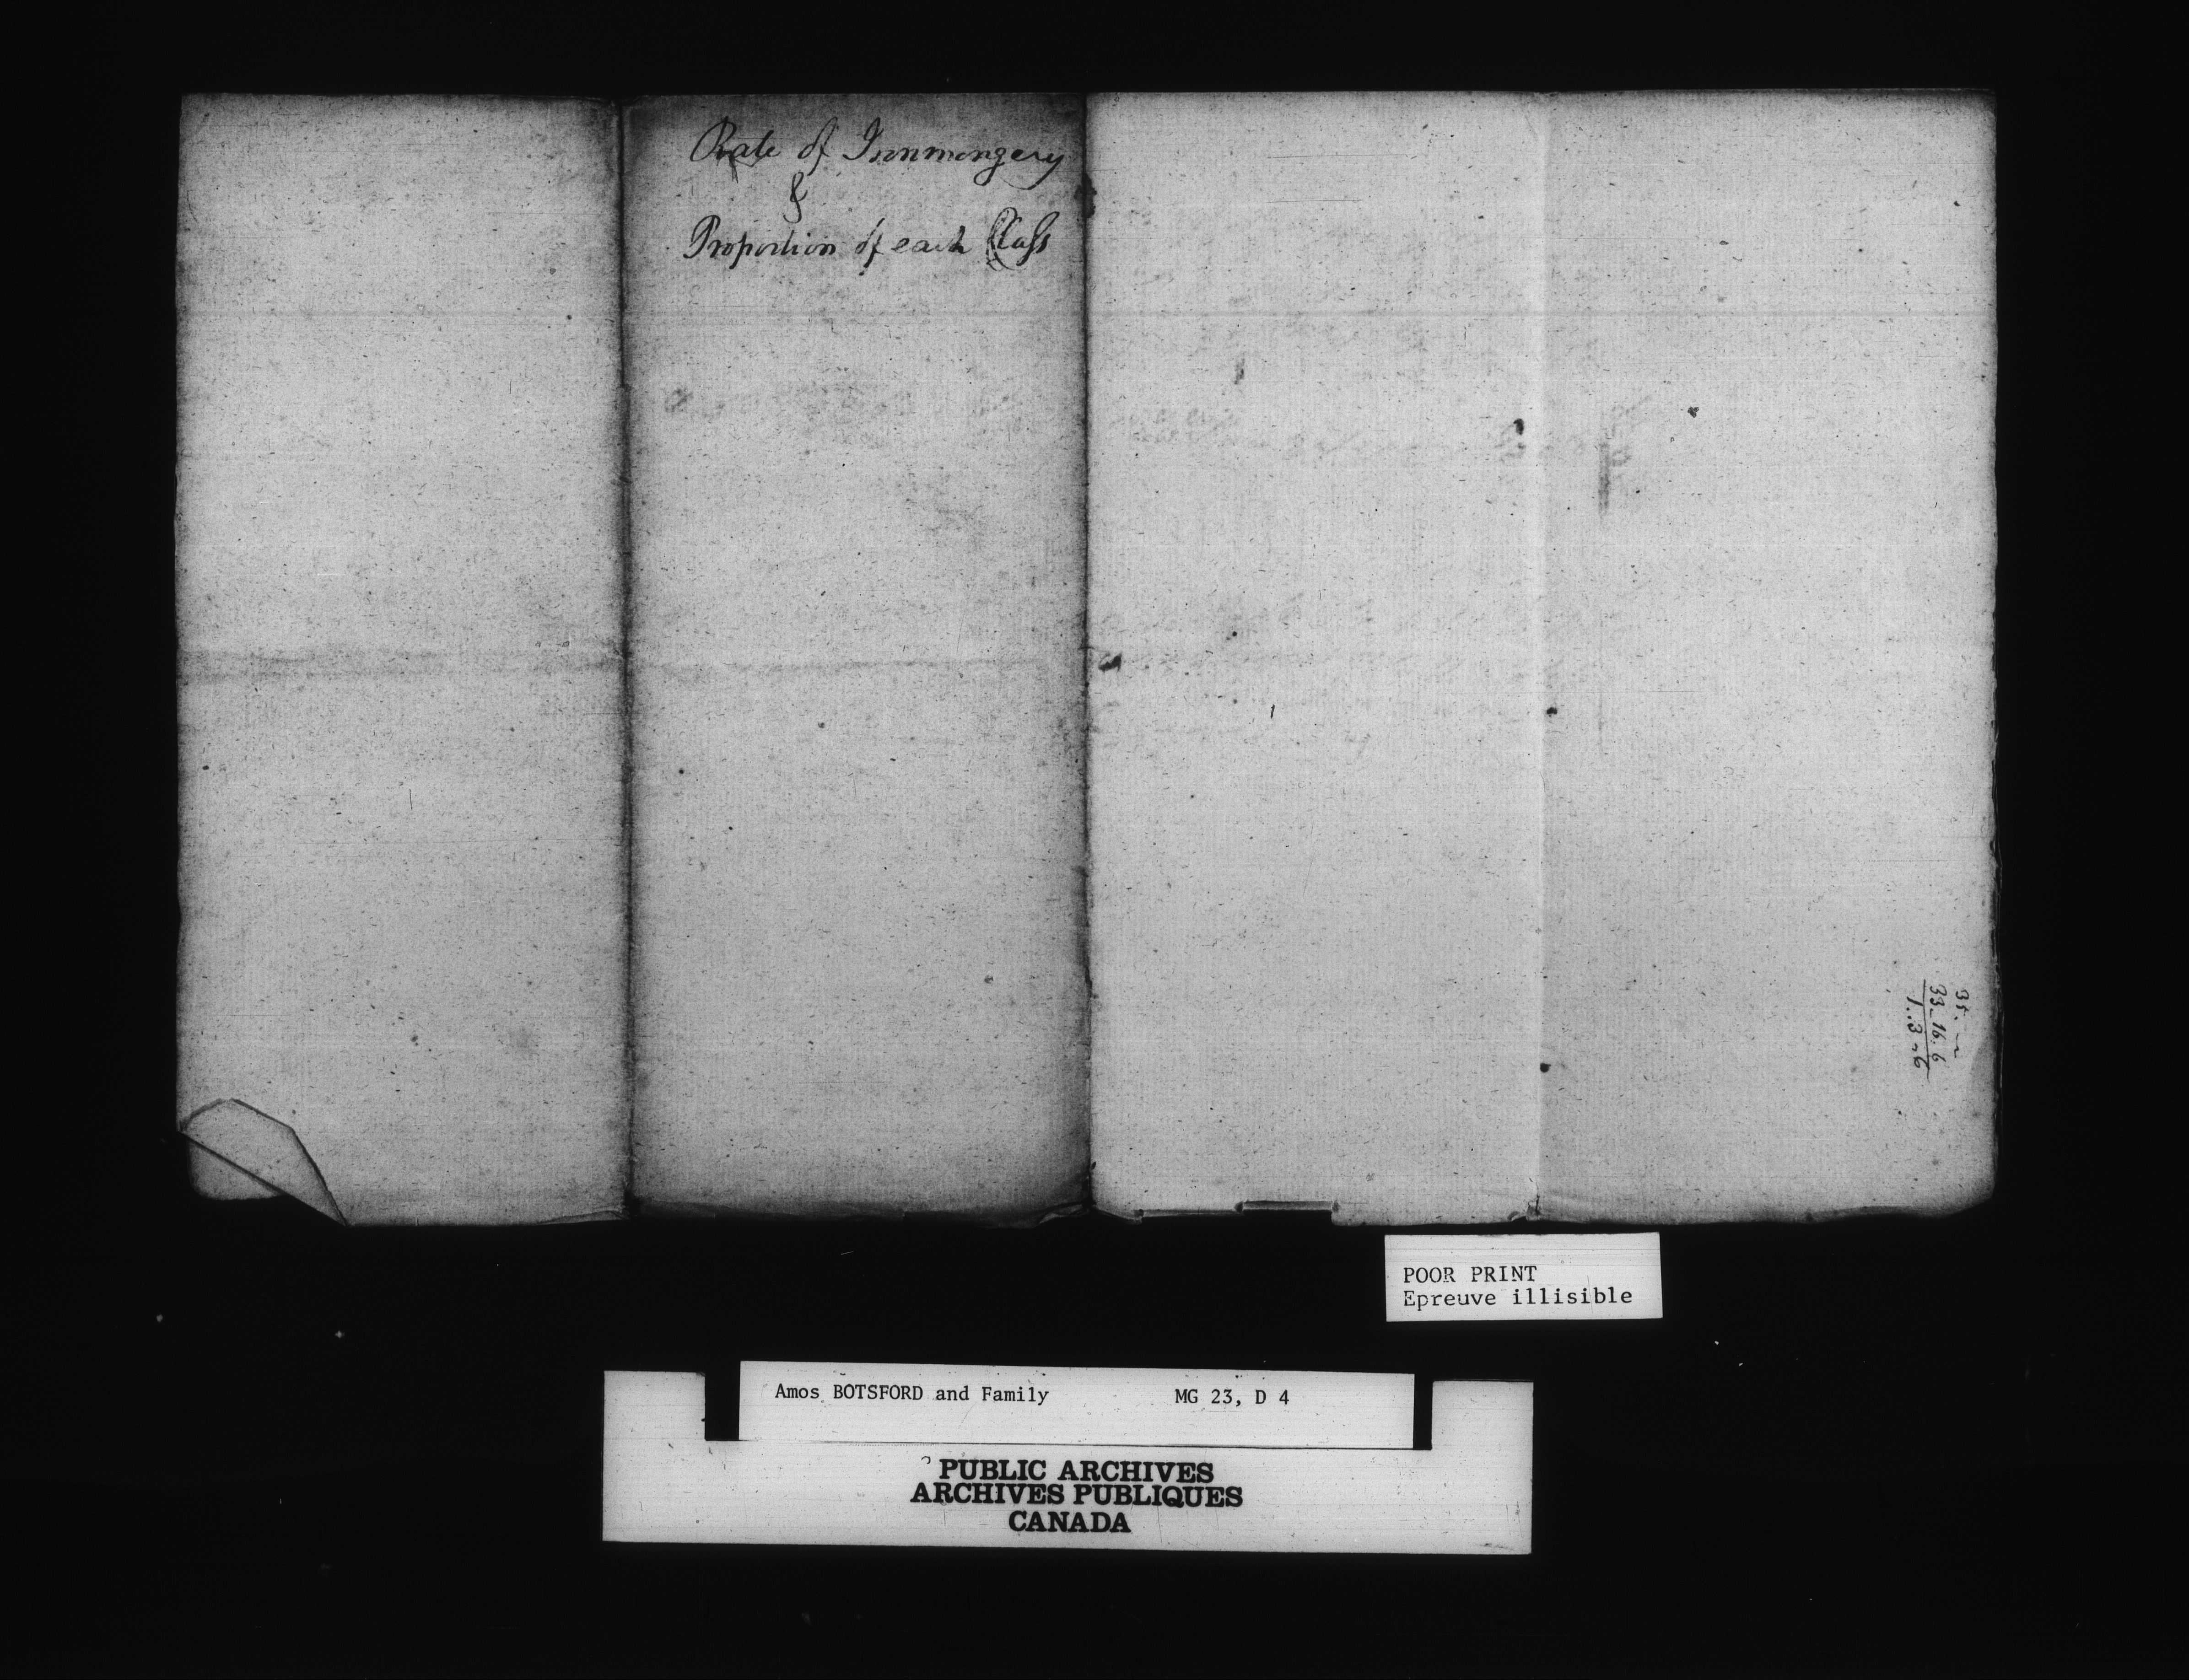 Rate of Ironmongery
&
Proportion of each Class
35. ~ ~
33. 16. 6
1.. 3 - 6
POOR PRINT
Epreuve illisible
Amos BOTSFORD and Family MG 23, D 4
PUBLIC ARCHIVES
ARCHIVES PUBLIQUES
CANADA